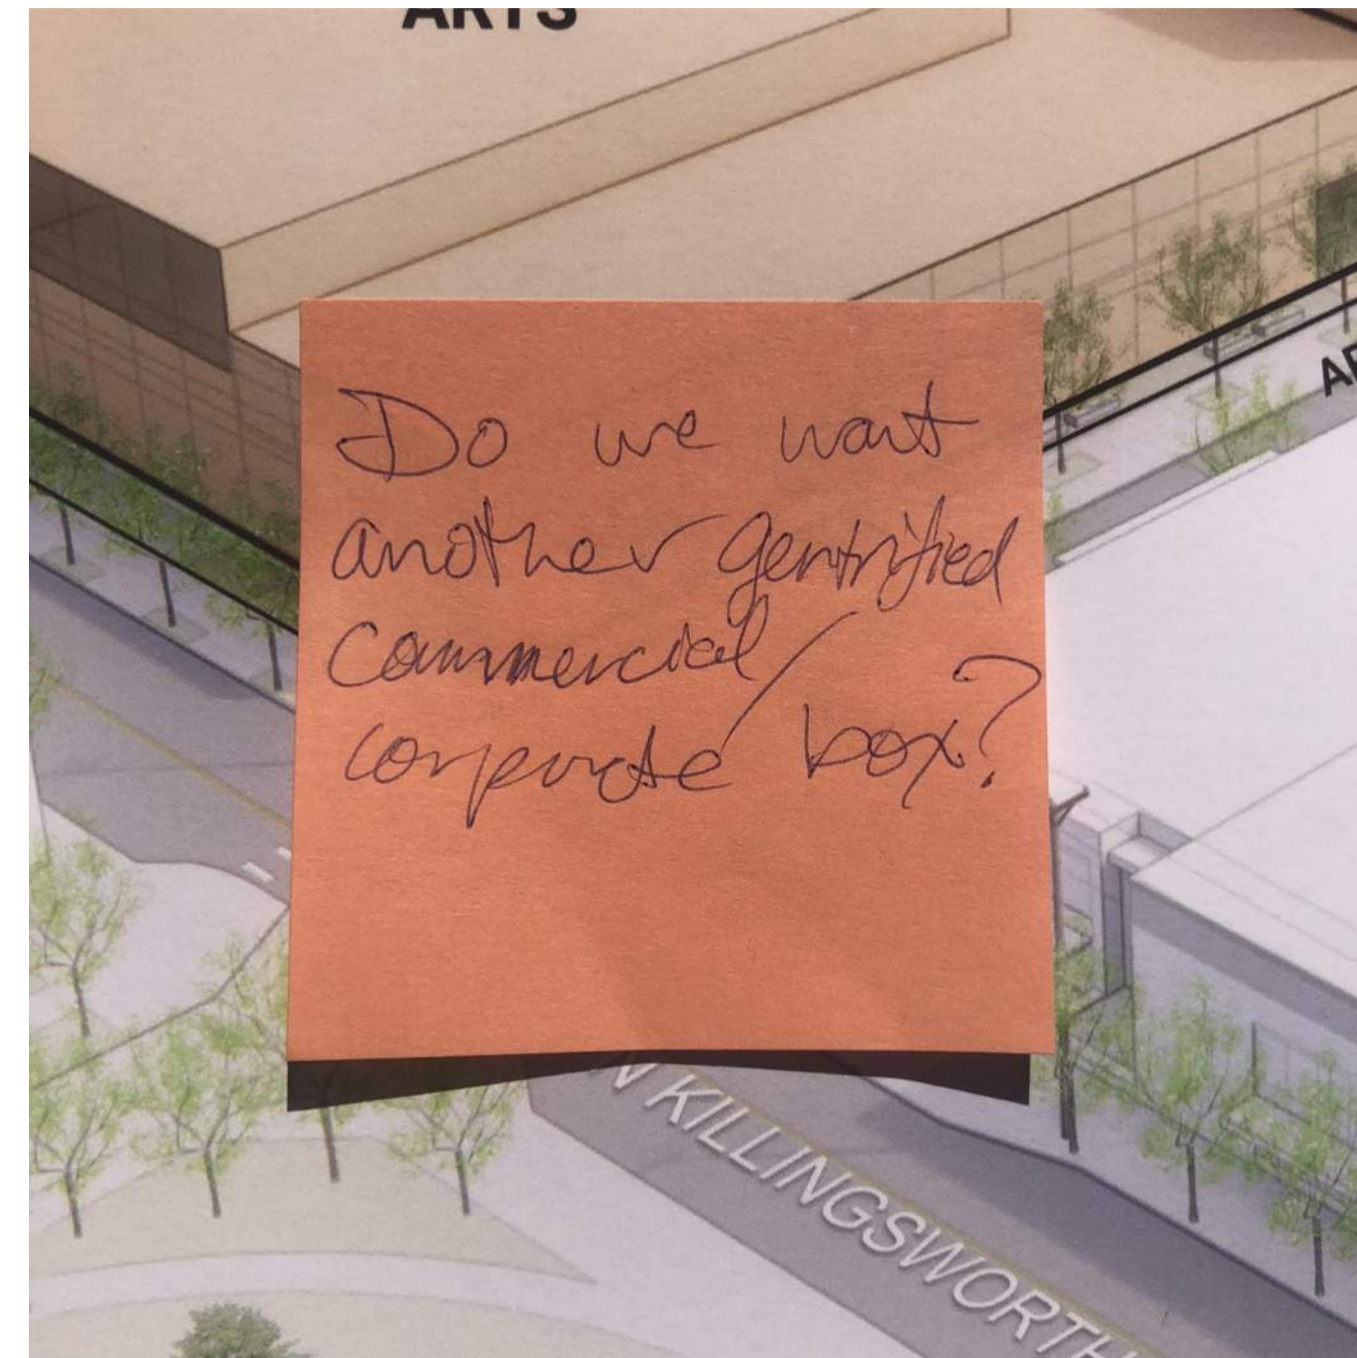 ARTS
Do we want
another gentrified
commercial/
corporate box?
N KILLINGSWORTH